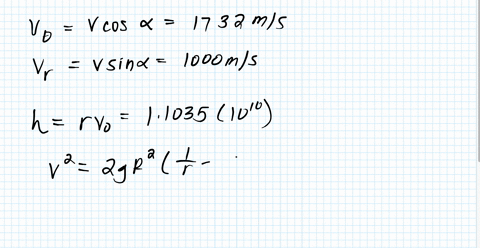 V_D = V cos α = 1732 m/s
V_r = V sin α = 1000 m/s
h = r v_0 = 1.1035 (10^10)
V^2 = 2gR^2 (1/r -